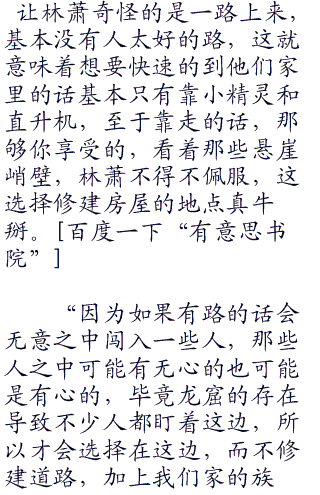 让林萧奇怪的是一路上来，
基本没有人太好的路，这就
意味着想要快速的到他们家
里的话基本只有靠小精灵和
直升机，至于靠走的话，那
够你享受的，看着那些悬崖
峭壁，林萧不得不佩服，这
选择修建房屋的地点真牛
掰。[百度一下“有意思书
院”]
“因为如果有路的话会
无意之中闯入一些人，那些
人之中可能有无心的也可能
是有心的，毕竟龙窟的存在
导致不少人都盯着这边，所
以才会选择在这边，而不修
建道路，加上我们家的族